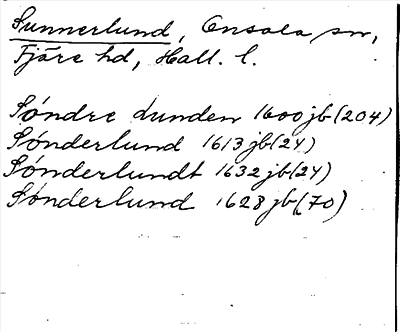 Sunnerlund, Onsala sn,
Fjäre hd, Hall. l.
Søndre Lunden 1600 jb (204)
Sønderlund 1613 jb (24)
Sønderlundt 1632 jb (24)
Sønderlund 1628 jb (70)